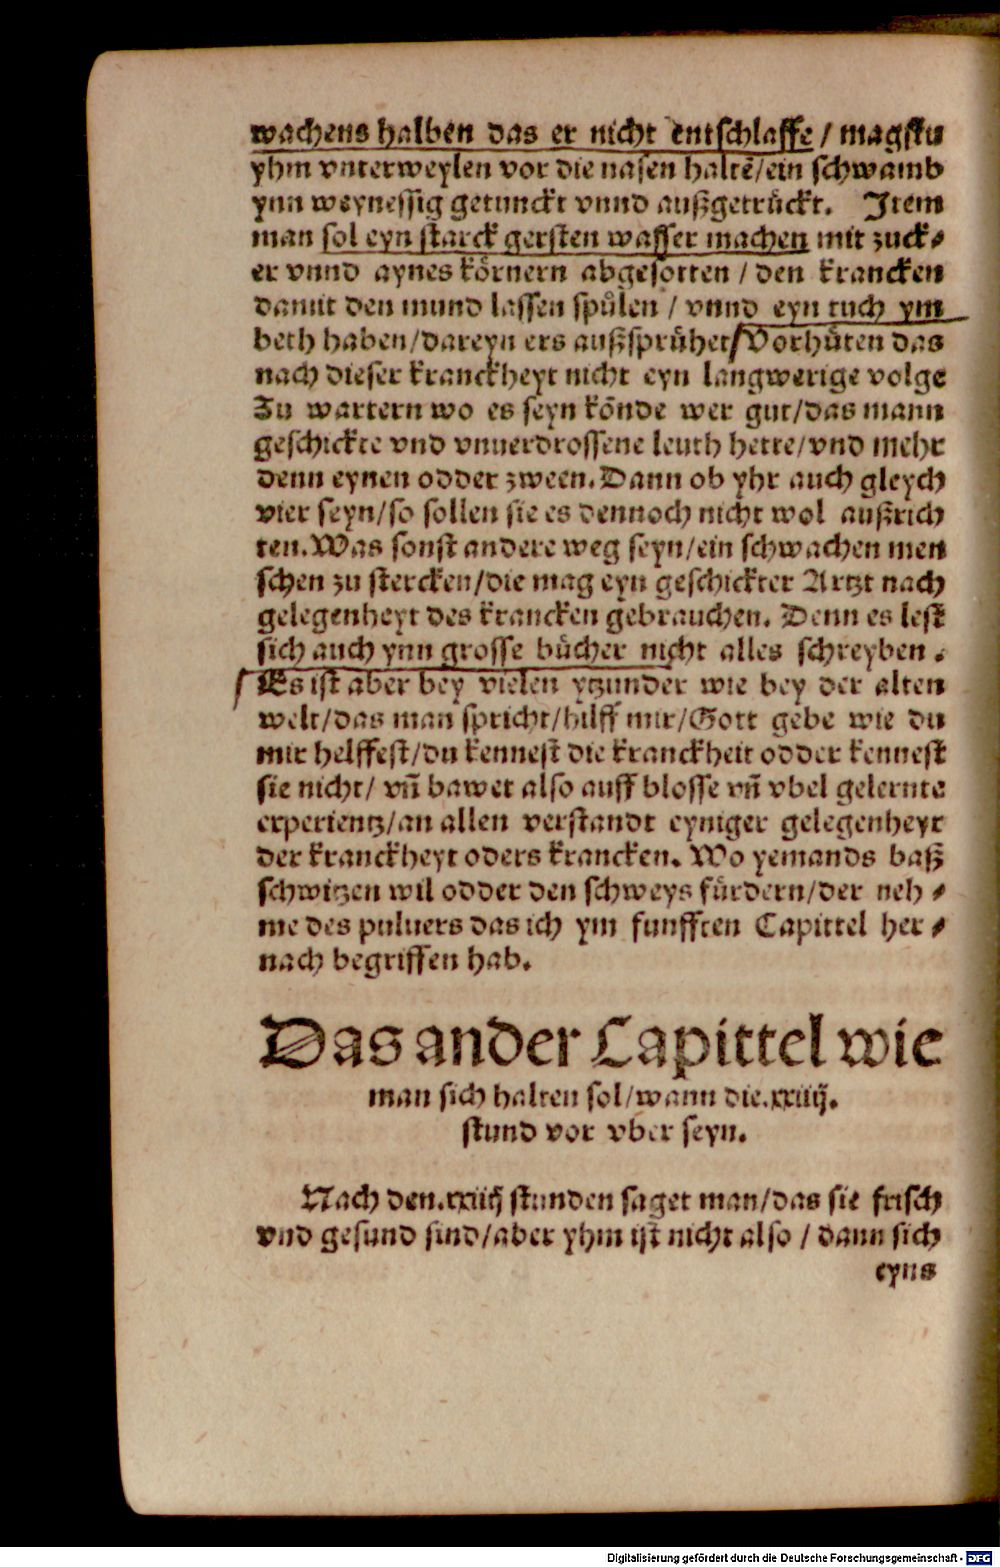 wachens halben das er nicht entschlaffe / magstu
yhm vnterweylen vor die nasen haltē/ein schwamb
ynn weynessig getunckt vnnd außgetrůckt. Item
man sol eyn starck gersten wasser machen mit zuck⸗
er vnnd aynes kőrnern abgesotten / den krancken
damit den mund lassen spůlen / vnnd eyn tuch ym
beth haben/dareyn ers außsprůhet/Vorhůten das
nach dieser kranckheyt nicht eyn langwerige volge
Zu wartern wo es seyn kőnde wer gut/das mann
geschickte vnd vnuerdrossene leuth hette/vnd mehr
denn eynen odder zween. Dann ob yhr auch gleych
vier seyn/so sollen sie es dennoch nicht wol außrich
ten. Was sonst andere weg seyn/ein schwachen men
schen zu stercken/die mag eyn geschickter Artzt nach
gelegenheyt des krancken gebrauchen. Denn es lest
sich auch ynn grosse bůcher nicht alles schreyben.
Es ist aber bey vielen ytzunder wie bey der alten
welt/das man spricht/hilff mir/Gott gebe wie du
mir helffest/du kennest die kranckheit odder kennest
sie nicht/ vñ bawet also auff blosse vñ vbel gelernte
experientz/an allen verstandt eyniger gelegenheyt
der kranckheyt oders krancken. Wo yemands baß
schwitzen wil odder den schweys fůrdern/der neh⸗
me des puluers das ich ym funfften Capittel her⸗
nach begriffen hab.
Das ander Capittel wie
man sich halten sol/wann die.xxiiij.
stund vor vber seyn.
Nach den.xxiiij stunden saget man/das sie frisch
vnd gesund sind/aber yhm ist nicht also / dann sich
eyns
Digitalisierung gefördert durch die Deutsche Forschungsgemeinschaft - DFG